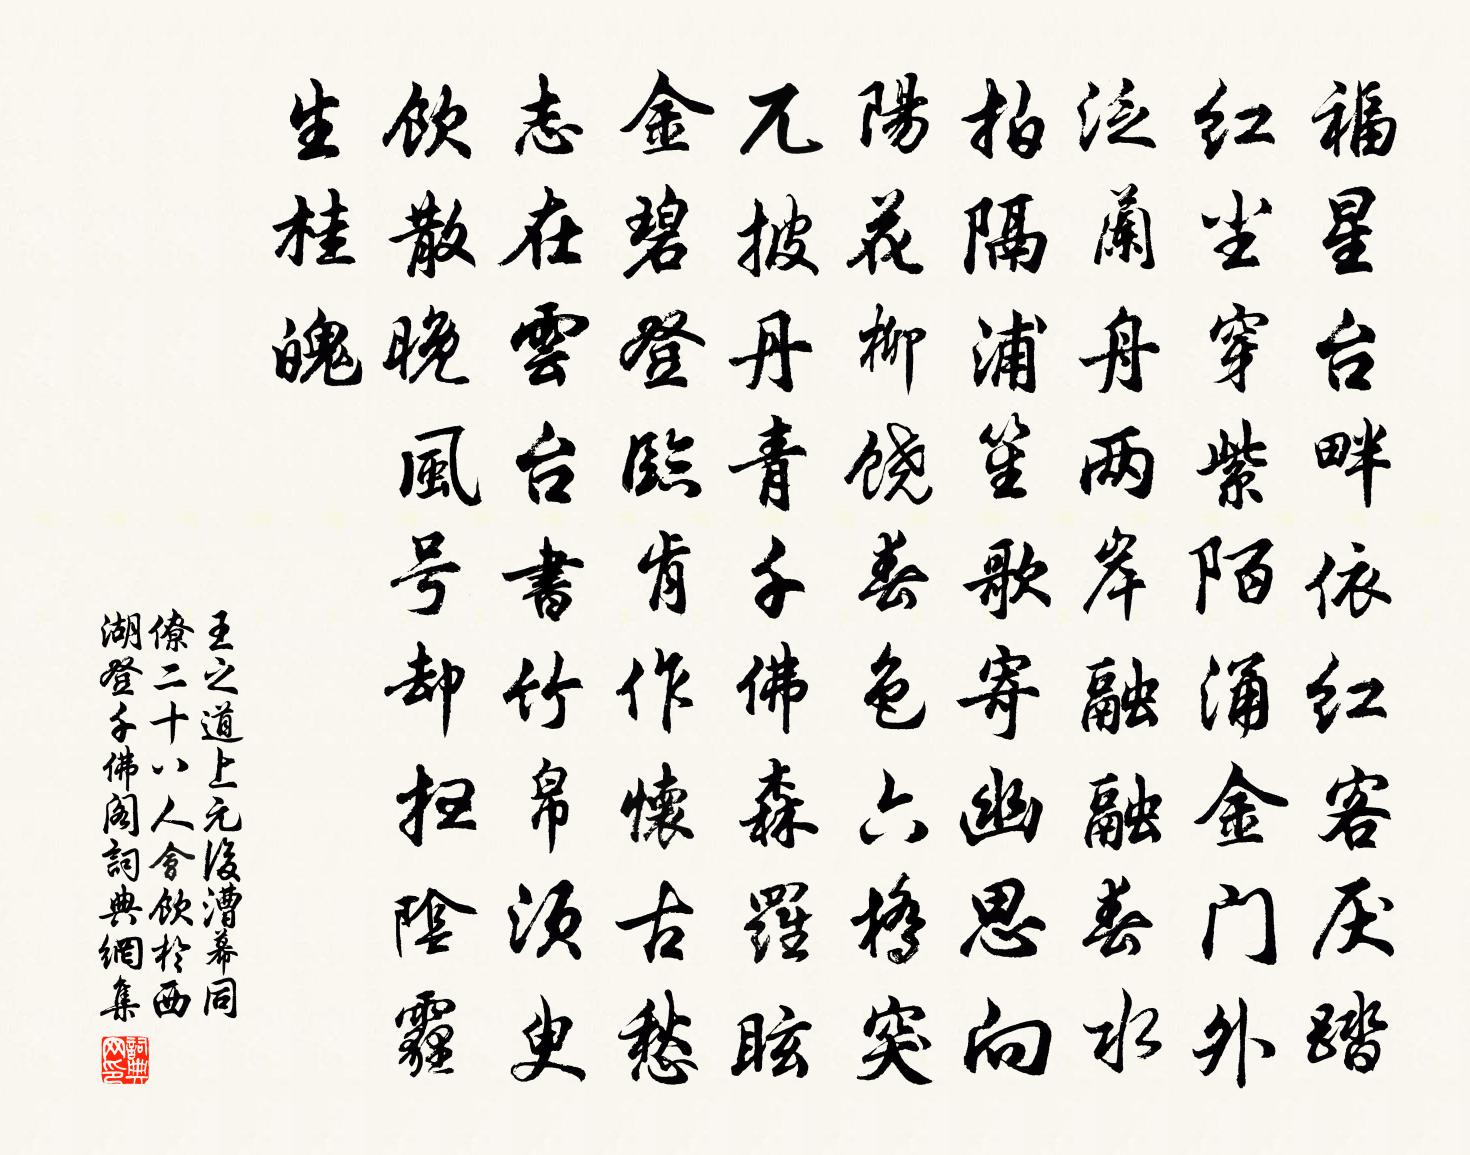 福星台畔依红客厌踏
红尘穿紫陌涌金门外
泛蘭舟两岸融融春水
拍隔浦笙歌寄幽思向
陽花柳饶春色六橋突
兀披丹青千佛森羅眩
金碧登臨肯作懷古愁
志在雲台書竹帛须臾
飲散晚風号却扫陰霾
生桂魄
王之道上元後漕幕同
僚二十八人會飲於西
湖登千佛阁詞典網集
詞典
网印